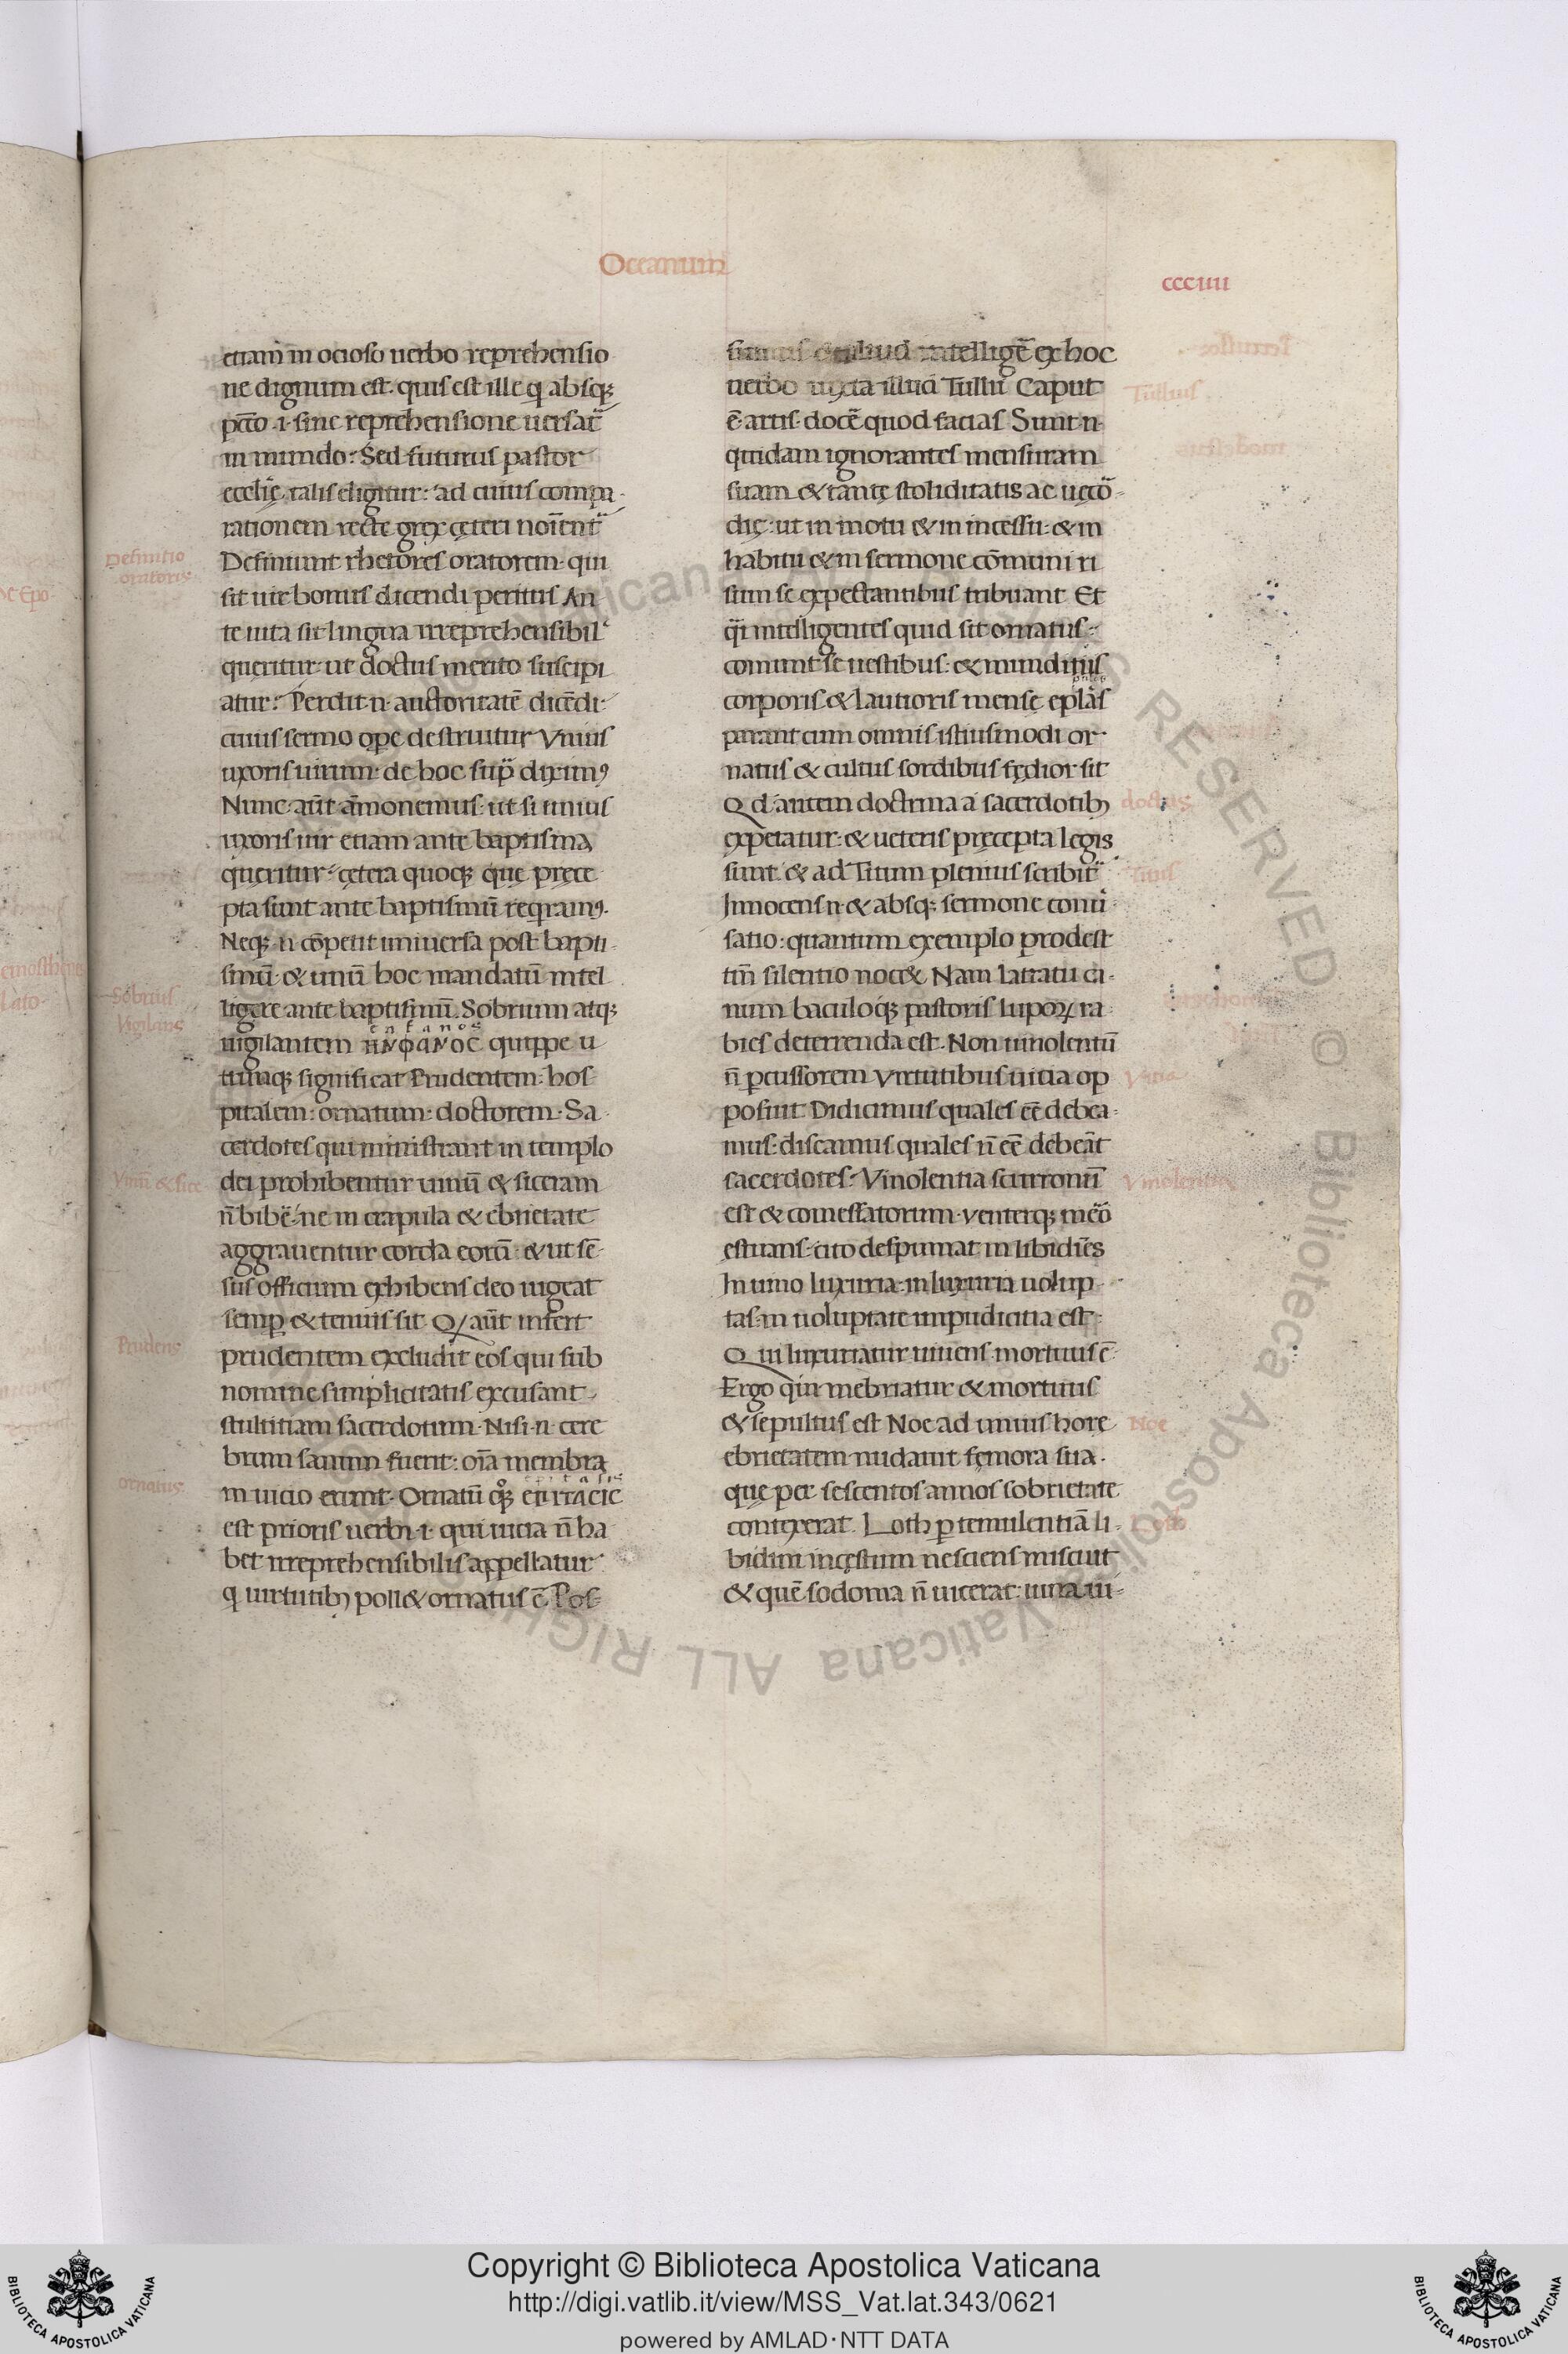 Oceanum
cccıııı
etiam in ocioso uerbo reprehensio
ne dignum est. quis est ille q absq;
pcc̄o .i. sine reprehensione uersat̄
in mundo? Sed futurus pastor
eccl̄ię. talis eligitur: ad cuius compa-
rationem recte grex çeteri noīent̄
Definiunt rhetores oratorem. qui
sit uir bonus dicendi peritus An
te uita sit lingua irreprehensibil'
queritur: ut doctus merito suscipi
atur. Perdit .n. auctoritatē dicēdi:
cuius sermo ope destruitur Vnius
uxoris uirum: de hoc sup̄ diximꝰ
Nunc aūt āmonemus: ut si unius
uxoris uir etiam ante baptisma
queritur: çetera quoq; que pręce
pta sunt ante baptismū reqramꝰ.
Neq; .n. cōpetit uniuersa post bapti-
smū. & unū hoc mandatū intel
ligere ante baptismū. Sobrium atq;
uigilantem ΝΗΦΑΝΟC quippe u
trumq; significat Prudentem: hos
pitalem: ornatum: doctorem. Sa
cerdotes qui ministrant in templo
dei prohibentur uinū & siceram
n̄ bibē: ne in crapula & ebrietate
aggrauentur corda eorū: & ut sē-
sus officium exhibens deo uigeat
semp & tenuis sit Qꝛ aūt infert
prudentem excludit eos qui sub
nomine simplicitatis excusant
stultitiam sacerdotum. Nisi .n. cere
brum sanum fuerit: oīa membra
in uicio erunt. Ornatū qq; ΕΠΙΤΑCΙC
est prioris uerbi .i. qui uicia n̄ ha
bet irreprehensibilis appellatur
q uirtutib; poll& ornatus ē Pos-
aliud intelligē ex hoc
uerbo iuxta illud Tullii Caput
ē artis. docē quod facias Sunt .n.
quidam ignorantes mensuram
suam & tantę stoliditatis ac uecō-
dię: ut in motu & in incessu: & in
habitu & in sermone cōmuni ri
sum se expectantibus tribuant Et
q̄i intelligentes quid sit ornatus:
comunt se uestibus: & munditiis
corporis & lautioris mense epl̄as
parant cum omnis istiusmodi or-
natus & cultus sordibus fędior sit
Qd autem doctrina a sacerdotib;
expetatur: & ueteris pręcepta legis
sunt. & ad Titum plenius scribit̄
Innocens .n. & absq; sermone conu̇
satio: quantum exemplo prodest
tm̄ silentio noc& Nam latratu ca-
num baculoq; pastoris lupoꝝ ra
bies deterrenda est. Non uinolentū
n̄ pcussorem Virtutibus uicia op
posuit Didicimus quales eē debea-
mus: discamus quales n̄ eē debeāt
sacerdotes. Vinolentia scurronū
est & comessatorum. Venterq; mēo
estuans: cito despumat in libidīes
In uino luxuria: in luxuria uolup-
tas: in uoluptate impudicitia est:
Qui luxuriatur uiuens mortuus ē
Ergo qui inebriatur & mortuus
& sepultus est Noe ad unius hore
ebrietatem nudauit femora sua.
quę per sescentos annos sobrietate
contexerat. Loth p temulentiā li-
bidini incęstum nesciens miscuit
& quē sodoma n̄ uicerat: uina ui-
Definitio
oratoris
Sobrius
Vigilans
Vinū & sice
Prudens
ornatus
Tullius
doctus
Titus
Vicia
Vinolentia
Noe
Loth
RESERVED © Biblioteca Apostolica Vaticana ALL RIGHTS
Copyright © Biblioteca Apostolica Vaticana
http://digi.vatlib.it/view/MSS_Vat.lat.343/0621
powered by AMLAD·NTT DATA
BIBLIOTECA APOSTOLICA VATICANA
BIBLIOTECA APOSTOLICA VATICANA